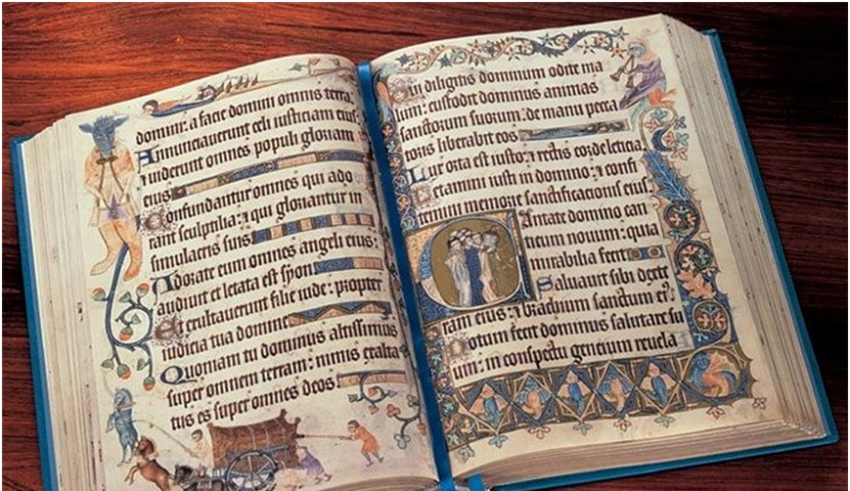 domini: a facie domini omnis terra.
Annunciauerunt celi iusticiam eius:
⁊ uiderunt omnes populi gloriam
eius
Confundantur omnes qui ado
rant sculptilia: ⁊ qui gloriantur in
simulacris suis
Adorate eum omnes angeli eius:
audiuit et letata est syon
Et exultauerunt filie iude: propter
iudicia tua domine
Quoniam tu dominus altissimus
super omnem terram: nimis exalta
tus es super omnes deos
Qui diligitis dominum odite ma
lum: custodit dominus animas
sanctorum suorum: de manu pecca
toris liberabit eos
Lux orta est iusto: ⁊ rectis corde leticia
Letamini iusti in domino: ⁊ confi
temini memorie sanctificacionis eius.
Cantate domino can
ticum nouum: quia
mirabilia fecit
Saluauit sibi dexte
ram eius: ⁊ brachium sanctum
Notum fecit dominus salutare su
um: in conspectu gencium reuela